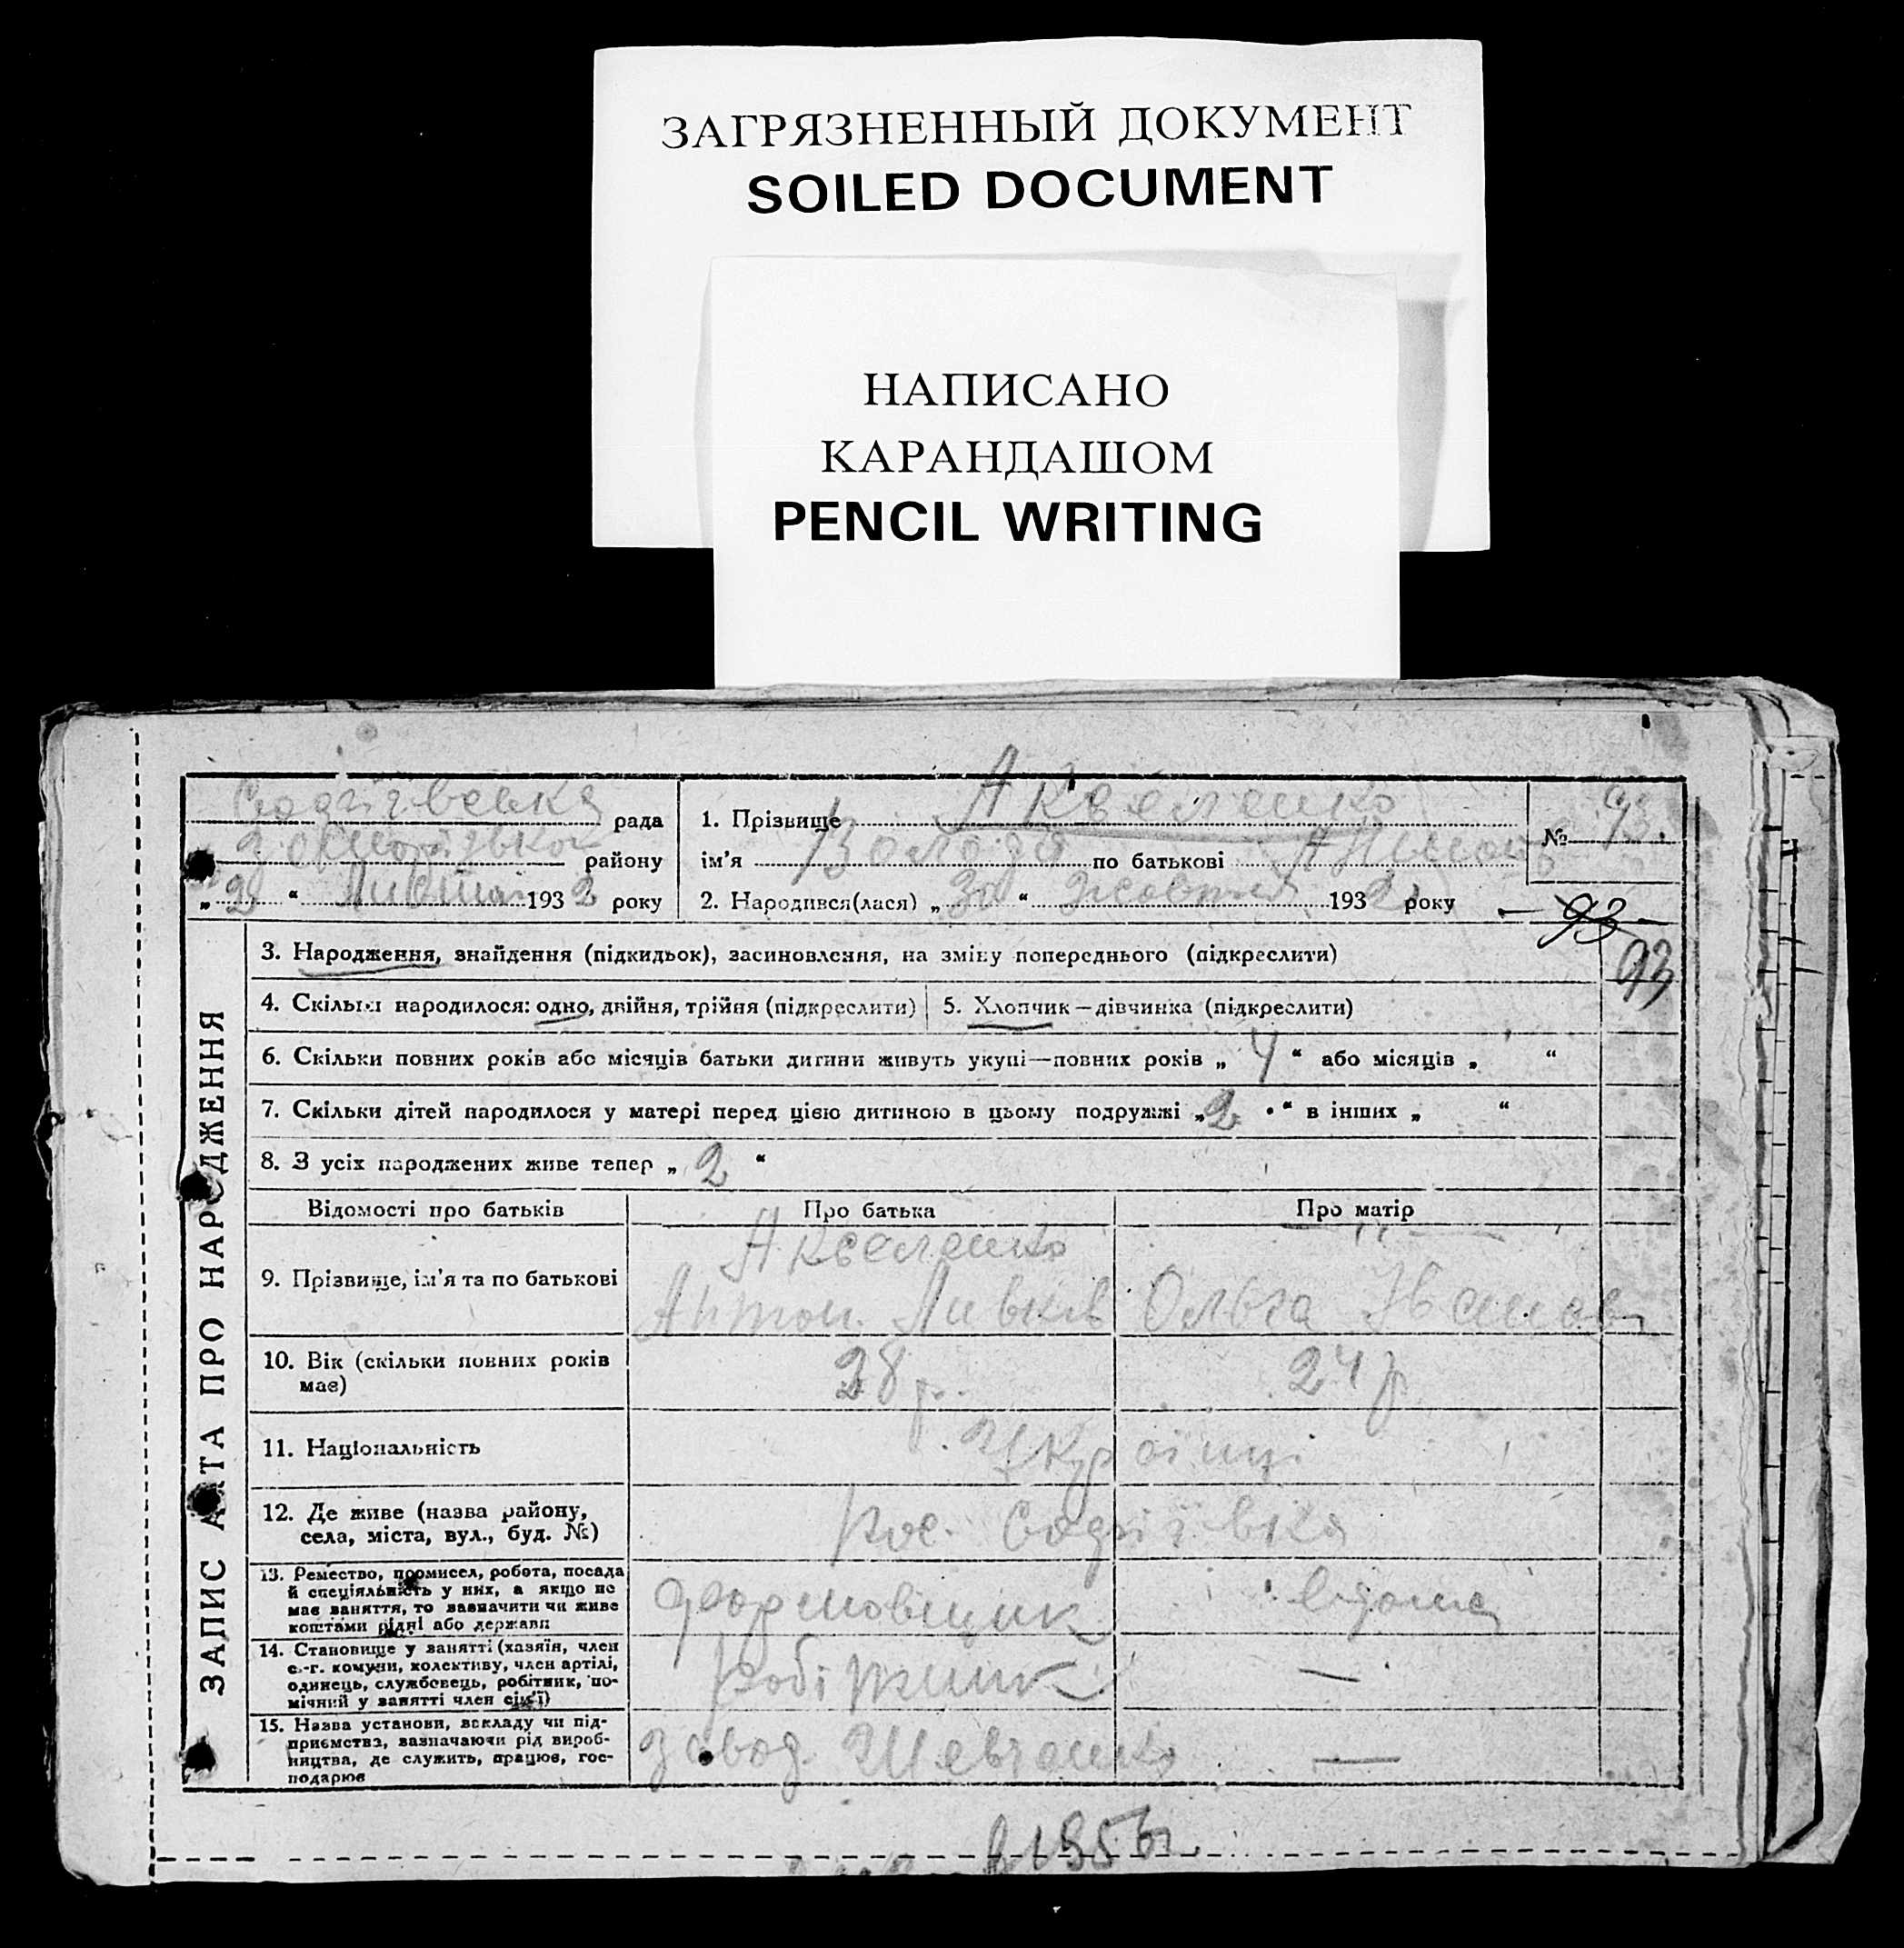 ЗАГРЯЗНЕННЫЙ ДОКУМЕНТ
SOILED DOCUMENT
НАПИСАНО
КАРАНДАШОМ
PENCIL WRITING
Софіївська рада
району
„ 2 “ Листоп 193 2 року
1. Прізвище
ім'я Володя по батькові Антонов
2. Народився(лася) „ 30 “ Жовтня 193 2 року
№ 93.
93
93
ЗАПИС АКТА ПРО НАРОДЖЕННЯ
3. Народження, знайдення (підкидьок), засиновлення, на зміну попереднього (підкреслити)
4. Скільки народилося: одно, двійня, трійня (підкреслити)
5. Хлопчик — дівчинка (підкреслити)
6. Скільки повних років або місяців батьки дитини живуть укупі—повних років „ 4 “ або місяців „ “
7. Скільки дітей народилося у матері перед цією дитиною в цьому подружжі „ 2 “ в інших „ “
8. З усіх народжених живе тепер „ 2 “
Відомості про батьків Про батька Про матір
9. Прізвище, ім'я та по батькові
Антон Ольга Іванов
10. Вік (скільки повних років
має)
28 р. 24 р
11. Національність Українці
12. Де живе (назва району,
села, міста, вул., буд. №)
пос. Софіївка
13. Ремество, промисел, робота, посада
й спеціяльність у них, а якщо не
має заняття, то зазначити чи живе
коштами рідні або держави
формовщик вдома
14. Становище у занятті (хазяїн, член
с.-г. комуни, колективу, член артілі,
одинець, службовець, робітник, по-
мічний у занятті член сім'ї)
Робітник —
15. Назва установи, закладу чи під-
приємства, зазначаючи рід вироб-
ництва, де служить, працює, гос-
подарює
завод Шевченко —